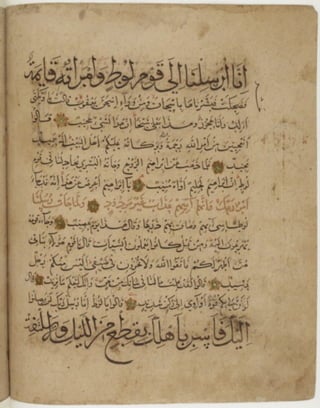 انا ارسلنا الى قوم لوط وامراته قايمة
فضحكت فبشرناها باسحاق ومن وراء اسحق يعقوب قالت يا ويلتى
االد وانا عجوز وهذا بعلي شيخا ان هذا لشي عجيب قالوا
اتعجبين من امر الله رحمة الله وبركاته عليكم اهل البيت انه حميد
مجيد فلما ذهب عن ابراهيم الروع وجاءته البشرى يجادلنا في قوم
لوط ان ابراهيم لحليم اواه منيب يا ابراهيم اعرض عن هذا انه قد جاء
امر ربك وانهم آتيهم عذاب غير مردود ولما جاءت رسلنا
لوطا سيء بهم وضاق بهم ذرعا وقال هذا يوم عصيب وجاءه قومه
يهرعون اليه ومن قبل كانوا يعملون السيئات قال يا قوم هؤلاء بناتي
هن اطهر لكم فاتقوا الله ولا تخزون في ضيفي اليس منكم رجل
رشيد قالوا لقد علمت ما لنا في بناتك من حق وانك لتعلم ما نريد قال
لو ان لي بكم قوة او آوي الى ركن شديد قالوا يا لوط انا رسل ربك لن يصلوا
اليك فاسر باهلك بقطع من الليل ولا يلتفت